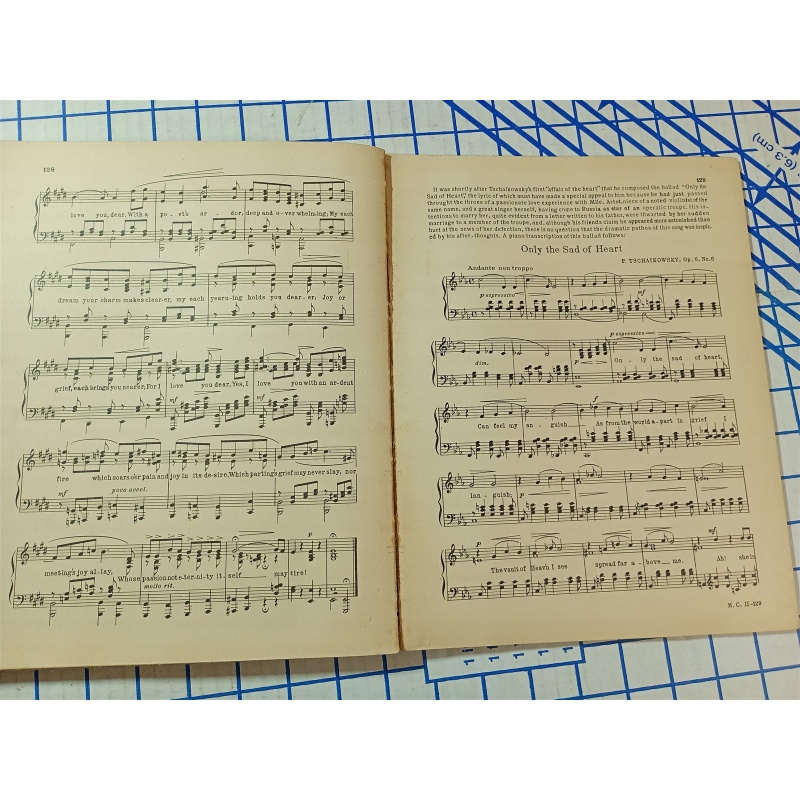 128
love you, dear, With a po-et's ar-dor, deep and o-ver whelm-ing; My each
dream your charm makes clear-er, my each yearn-ing holds you dear-er; Joy or
grief, each brings you nearer, For I love you dear, Yes, I love you with an ar-dent
mf mf
fire which soars o'er pain and joy in its de-sire, Which parting's grief may never slay, nor
mf poco accel.
p
meeting's joy al-lay, Whose passion not e-ter-ni-ty it-self may tire!
molto rit.
129
It was shortly after Tschaikowsky's first "affair of the heart" that he composed the ballad "Only the
Sad of Heart", the lyric of which must have made a special appeal to him because he had just passed
throught the throes of a passionate love experience with Mlle. Artot, niece of a noted violinist of the
same name, and a great singer herself, having come to Russia as star of an operatic troupe. His in-
tentions to marry her, quite evident from a letter written to his father, were thwarted by her sudden
marriage to a member of the troupe, and, although his friends claim he appeared more astonished than
hurt at the news of her defection, there is no question that the dramatic pathos of this song was inspir-
ed by his after-thoughts. A piano transcription of this ballad follows:
Only the Sad of Heart
P. TSCHAIKOWSKY, Op. 6, No. 6
Andante non troppo
p espressivo mf
p espressivo
dim. p On-ly the sad of heart,
f
Can feel my an-guish As from the world a-part in grief I
lan-guish; p
p mf
The vault of Heav'n I see spread far a-bove me. Ah! she is
M. C. II-129
(6.3 cm)